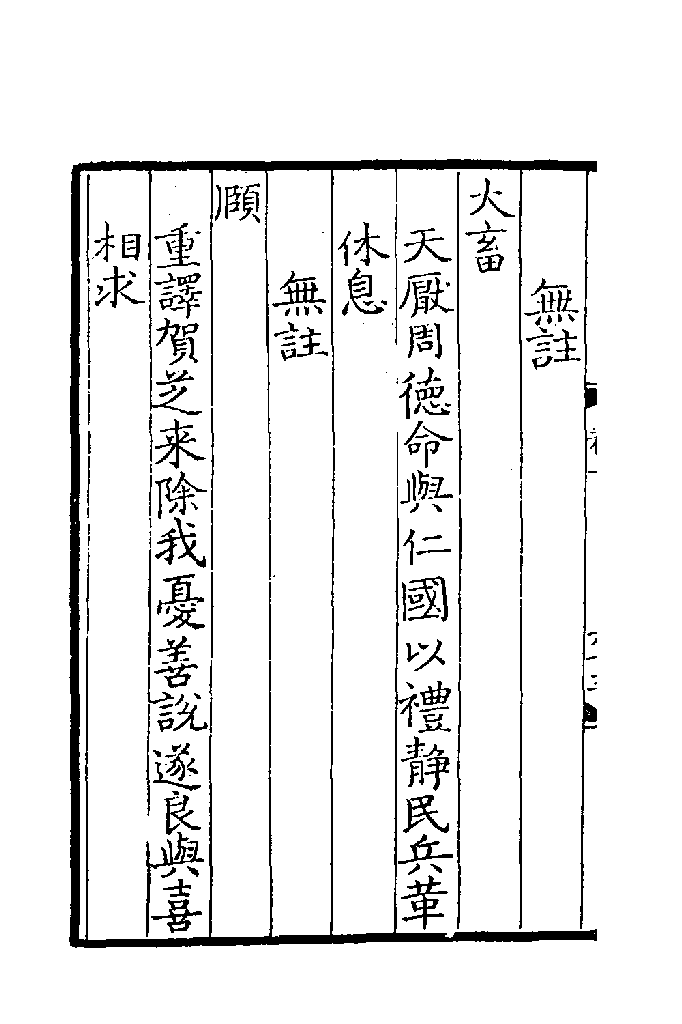 無註
大畜
天厭周徳命與仁國以禮静民兵革
休息
無註
頤
重譯賀芝来除我憂善説遂良與喜
相求